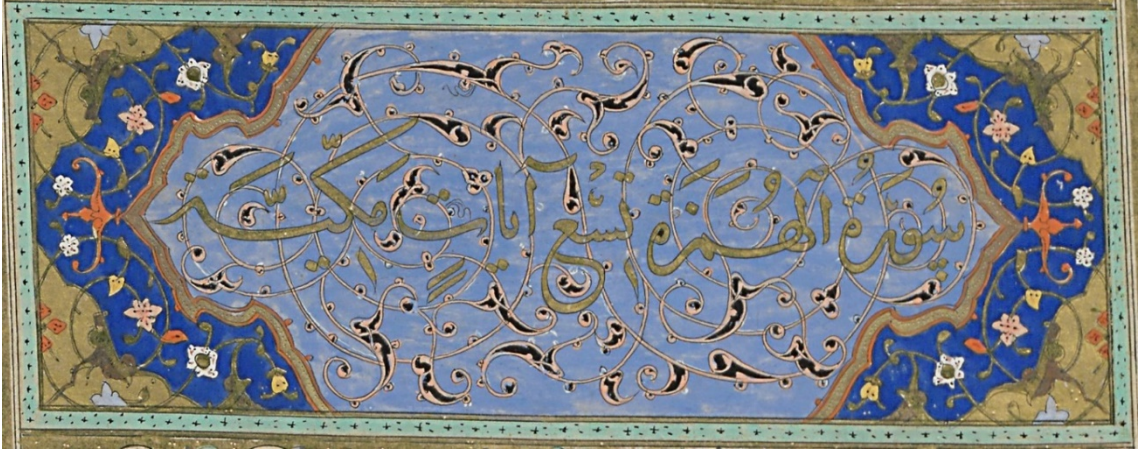 سُورَةُ الهُمَزَة تِسْعُ آيَاتٍ مَكِّيَّة